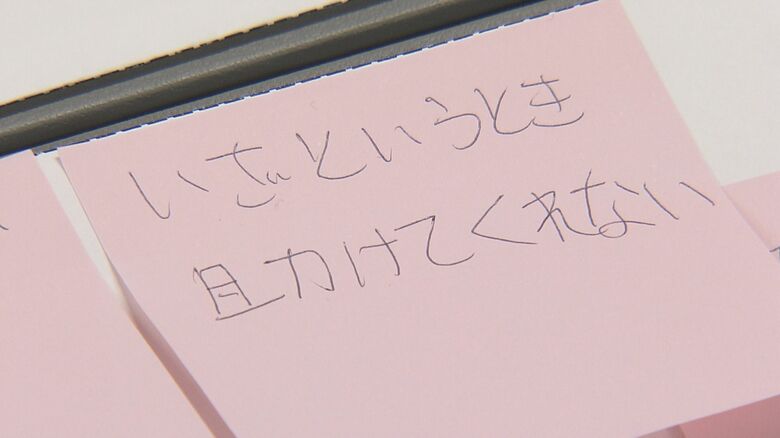 いざというとき
助けてくれない